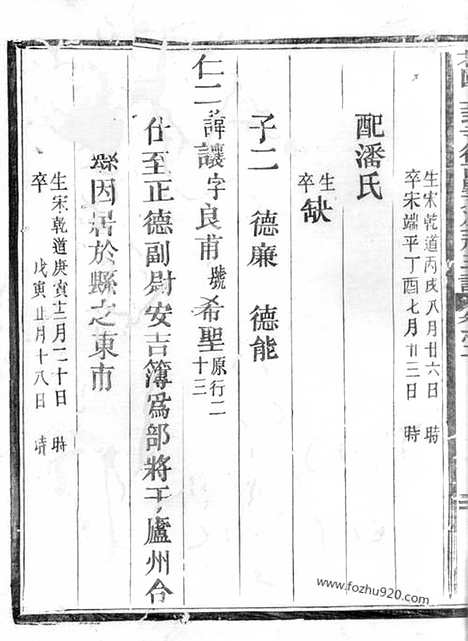 生宋乾道丙戌八月廿六日 時
卒宋端平丁酉七月廿三日 時
配潘氏
生
卒 缺
子二 德廉 德能
仁二諱讓字良甫號希聖原行二十三
仕至正德副尉安吉簿為部將于廬州合
縣因居於縣之東市
生宋乾道庚寅十二月二十日 時
卒 戊寅正月十八日 時
www.fozhu920.com